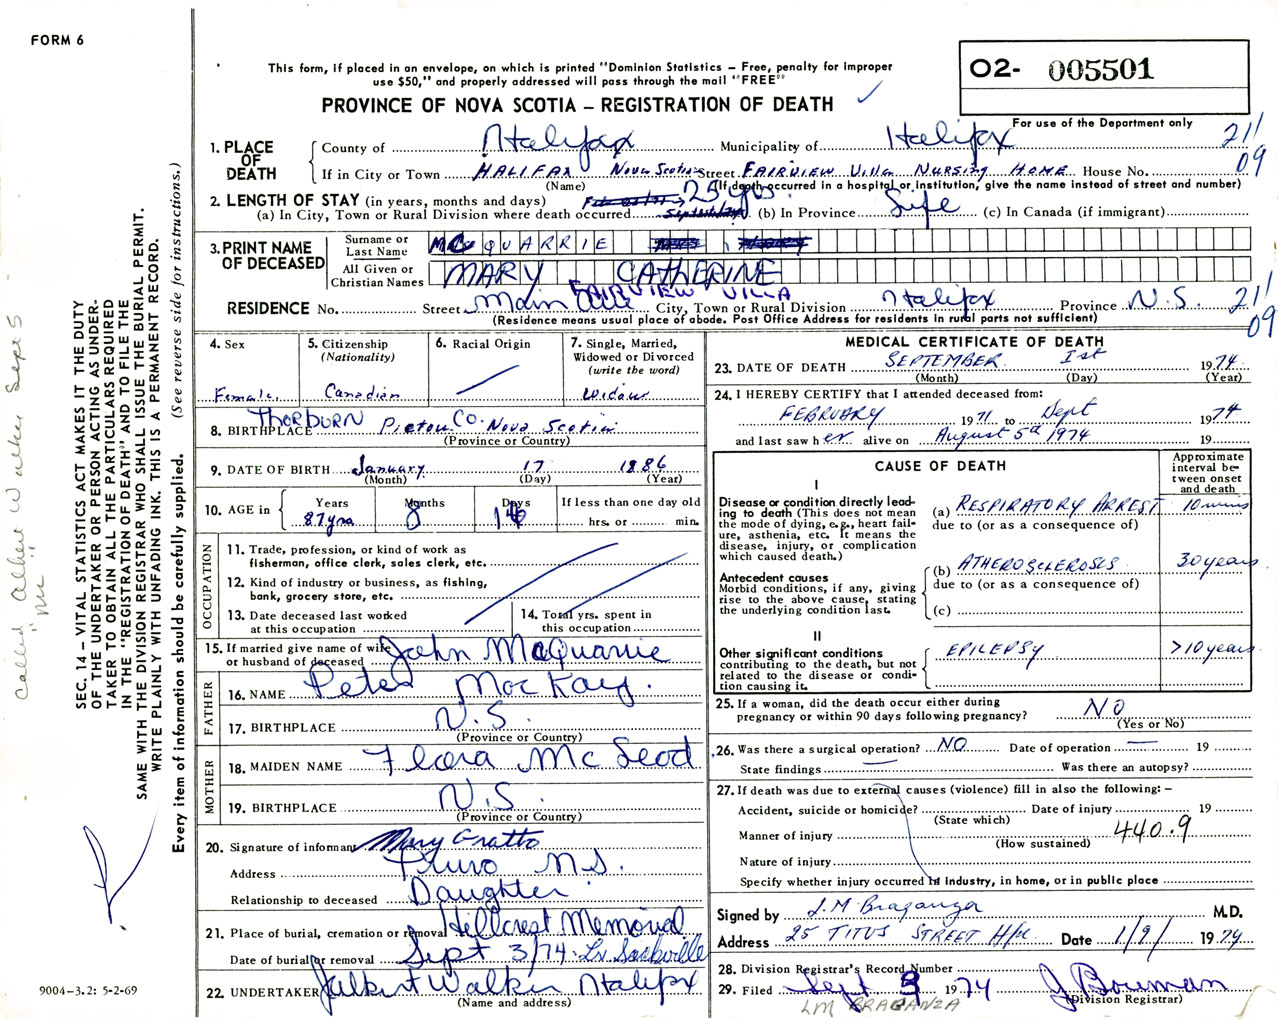 FORM 6
This form, if placed in an envelope, on which is printed "Dominion Statistics – Free, penalty for improper
use $50," and properly addressed will pass through the mail "FREE"
PROVINCE OF NOVA SCOTIA – REGISTRATION OF DEATH
O2- 005501
For use of the Department only
1. PLACE OF DEATH
County of Halifax Municipality of Halifax 21/
If in City or Town HALIFAX Nova Scotia Street FAIRVIEW Villa NURSING HOME House No. 09
(Name) (If death occurred in a hospital or institution, give the name instead of street and number)
2. LENGTH OF STAY (in years, months and days) 25 yrs.
(a) In City, Town or Rural Division where death occurred (b) In Province Life (c) In Canada (if immigrant)
3. PRINT NAME OF DECEASED
Surname or Last Name McQUARRIE
All Given or Christian Names MARY CATHERINE
FAIRVIEW VILLA
RESIDENCE No. Street Main Ave City, Town or Rural Division Halifax Province N.S. 21/
(Residence means usual place of abode. Post Office Address for residents in rural parts not sufficient) 09
4. Sex
Female
5. Citizenship
(Nationality)
Canadian
6. Racial Origin
7. Single, Married,
Widowed or Divorced
(write the word)
Widow
8. BIRTHPLACE Thorburn Pictou Co. Nova Scotia
(Province or Country)
9. DATE OF BIRTH January 17 1886
(Month) (Day) (Year)
10. AGE in
Years Months Days If less than one day old
87 yrs 8 hrs. or min.
OCCUPATION
11. Trade, profession, or kind of work as
fisherman, office clerk, sales clerk, etc.
12. Kind of industry or business, as fishing,
bank, grocery store, etc.
13. Date deceased last worked
at this occupation
14. Total yrs. spent in
this occupation
15. If married give name of wife
or husband of deceased John McQuarrie
FATHER
16. NAME Peter MacKay.
17. BIRTHPLACE N.S.
(Province or Country)
MOTHER
18. MAIDEN NAME Flora McLeod
19. BIRTHPLACE N.S.
(Province or Country)
20. Signature of informant Mary Gratto
Address Truro N.S.
Relationship to deceased Daughter
21. Place of burial, cremation or removal Hillcrest Memorial
Date of burial or removal Sept 3/74 Lr Sackville
22. UNDERTAKER J Albert Walker Halifax
(Name and address)
MEDICAL CERTIFICATE OF DEATH
23. DATE OF DEATH SEPTEMBER 1st 1974
(Month) (Day) (Year)
24. I HEREBY CERTIFY that I attended deceased from:
FEBRUARY 1971 to Sept 1974
and last saw her alive on August 5th 1974 19
CAUSE OF DEATH
Approximate
interval be-
tween onset
and death
I
Disease or condition directly lead-
ing to death (This does not
mean the mode of dying, e.g., heart fail-
ure, asthenia, etc. It means the
disease, injury, or complication
which caused death.)
(a) RESPIRATORY ARREST 10 mins
due to (or as a consequence of)
Antecedent causes
Morbid conditions, if any, giving
rise to the above cause, stating
the underlying condition last.
(b) ATHEROSCLEROSIS 30 years
due to (or as a consequence of)
(c)
II
Other significant conditions
contributing to the death, but not
related to the disease or condi-
tion causing it.
EPILEPSY >10 years
25. If a woman, did the death occur either during
pregnancy or within 90 days following pregnancy? NO
(Yes or No)
26. Was there a surgical operation? NO Date of operation — 19
State findings — Was there an autopsy?
27. If death was due to external causes (violence) fill in also the following: –
Accident, suicide or homicide? Date of injury 19
(State which)
Manner of injury 440.9
(How sustained)
Nature of injury
Specify whether injury occurred in industry, in home, or in public place
Signed by L.M. Braganza M.D.
Address 25 TITUS STREET Hfx. Date 1/9/ 1974
28. Division Registrar's Record Number
29. Filed Sept 3 1974 J Bowman
(Division Registrar)
LM BRAGANZA
SEC. 14 – VITAL STATISTICS ACT MAKES IT THE DUTY
OF THE UNDERTAKER OR PERSON ACTING AS UNDER-
TAKER TO OBTAIN ALL THE PARTICULARS REQUIRED
IN THE "REGISTRATION OF DEATH" AND TO FILE THE
SAME WITH THE DIVISION REGISTRAR WHO SHALL ISSUE THE BURIAL PERMIT.
WRITE PLAINLY WITH UNFADING INK. THIS IS A PERMANENT RECORD.
Every item of information should be carefully supplied. (See reverse side for instructions.)
Called Albert Walker Sept 5
9004-3.2: 5-2-69